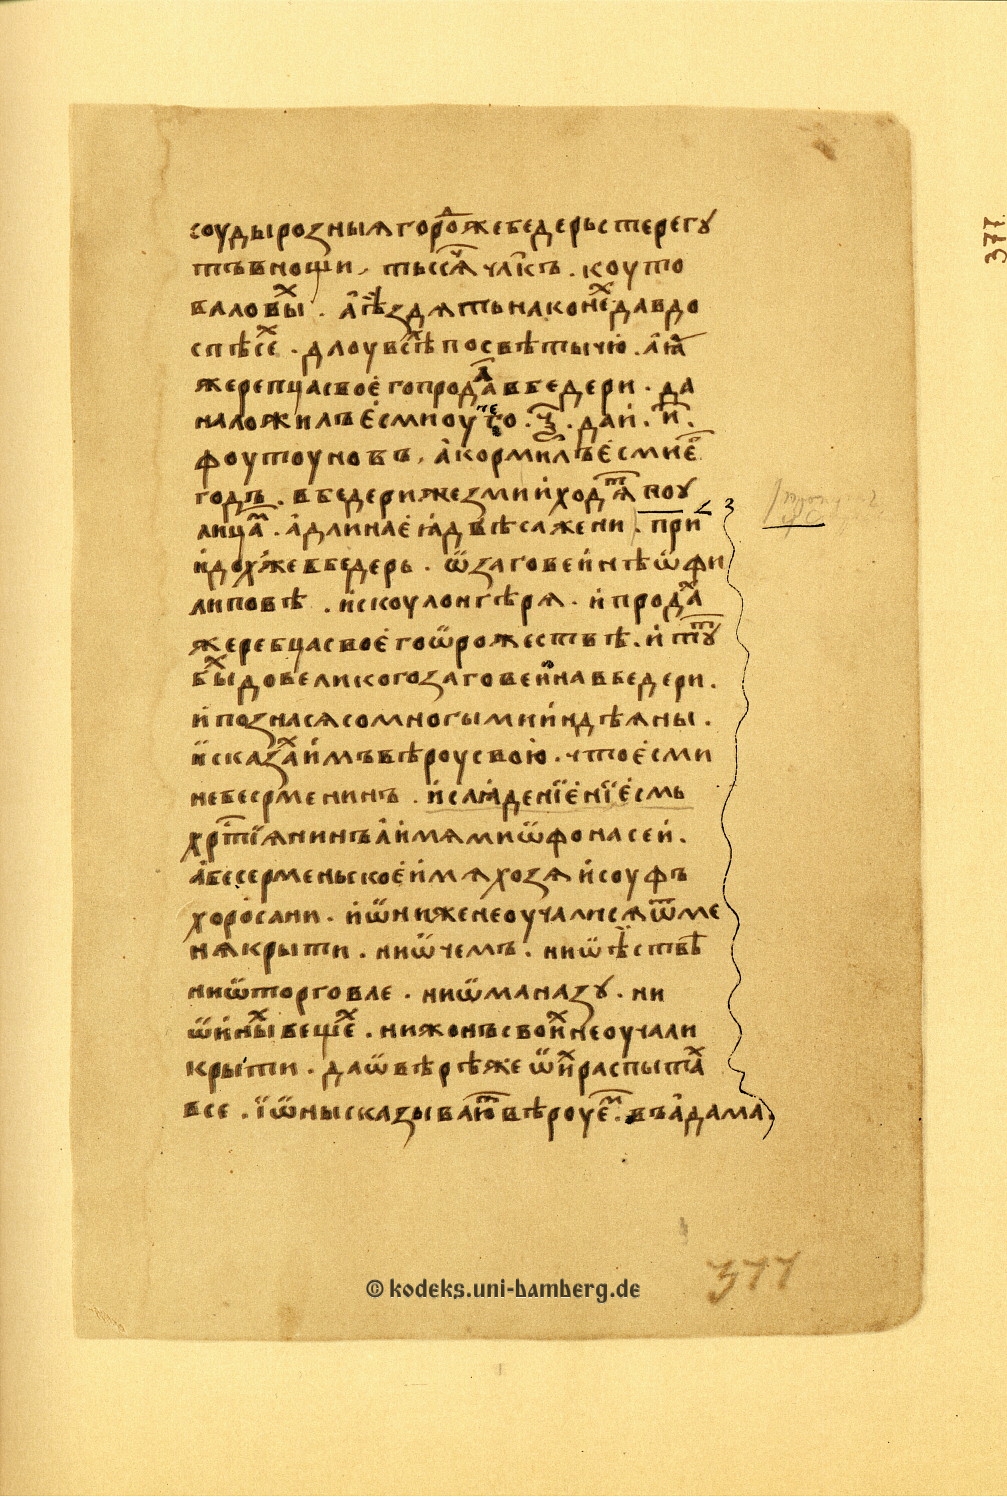 соудырознyя горѡⷣже бедерь стерегу
тъ в нощи, тысѧⷱ члк҃ъ . коуто
валовыⷯ . а҆ ѣздѧть на конеⷯ да в до
спѣсеⷯ . да оу всѣⷯ по свѣтычю . а҆ ꙗ҆ⷥ
жерепца своего продаⷧ в бедери . да
наложилъ е҆сми оу него . ѯ҃ . да и҆ . и҃ .
фоутоуновъ , а҆ кормилъ е҆сми еⷢ҇
годъ . в бедери же змии ходѧⷮ по оу
лицаⷨ . а҆ длина е҆ꙗ҆ двѣ сажени . при
и҆доⷯ же в бедерь . ѿ заговеи҆нѣ ѿ фи
липовѣ . ис коулонгѣрѧ . и҆ продаⷯ
жеребца своего ѿ рожествѣ . и҆ тꙋⷮ
быⷯ до великого заговеи҆на в бедери .
и҆ познасѧ со многыми и҆ндѣѧны .
и҆ сказаⷯ и҆мъ вѣроу свою . что е҆сми
не бесерменинъ . и҆саꙗ҆дениї е҆нїе҆смь
хрⷭ҇тїѧнинъ а҆ и҆мѧ ми ѿфонасеи .
а҆ бесерменьское и҆мѧ хозѧ и҆соуфъ
хоросани . и҆ ѡ҆ни же не оучалисѧ ѿ ме
нѧ крыти . ни ѿ чемъ . ни ѿ ѣствѣ
ни ѿ торговле . ни ѿ маназу . ни
ѿ и҆ныⷯ вещеⷯ . ни жонъ своиⷯ не оучали
крыти . да ѿ вѣрѣ же ѿ иⷯ распытаⷯ
все . ї҆ ѡ҆ны сказываюⷮ вѣроуеⷨ . въ а҆дама .
377
377
© kodeks.uni-bamberg.de